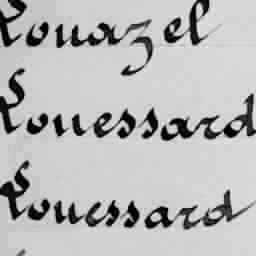 Rouazel
Rouessard
Rouessard